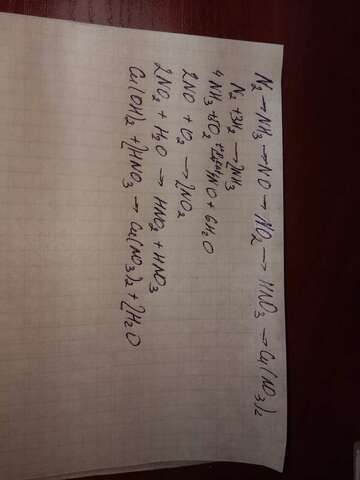 N₂ → NH₃ → NO → NO₂ → HNO₃ → Cu(NO₃)₂
N₂ + 3H₂ → 2NH₃
4NH₃ + 5O₂ → 4NO + 6H₂O
2NO + O₂ → 2NO₂
2NO₂ + H₂O → HNO₂ + HNO₃
Cu(OH)₂ + 2HNO₃ → Cu(NO₃)₂ + 2H₂O